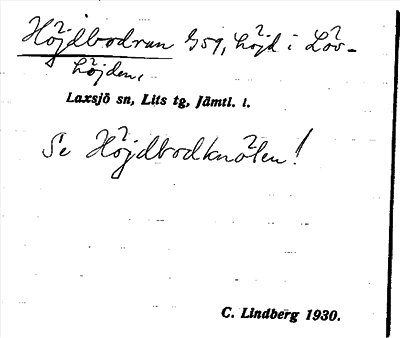 Höjdbodrun G59, höjd i Löv-
höjden,
Laxsjö sn, Lits tg, Jämtl. l.
Se Höjdbodknölen!
C. Lindberg 1930.